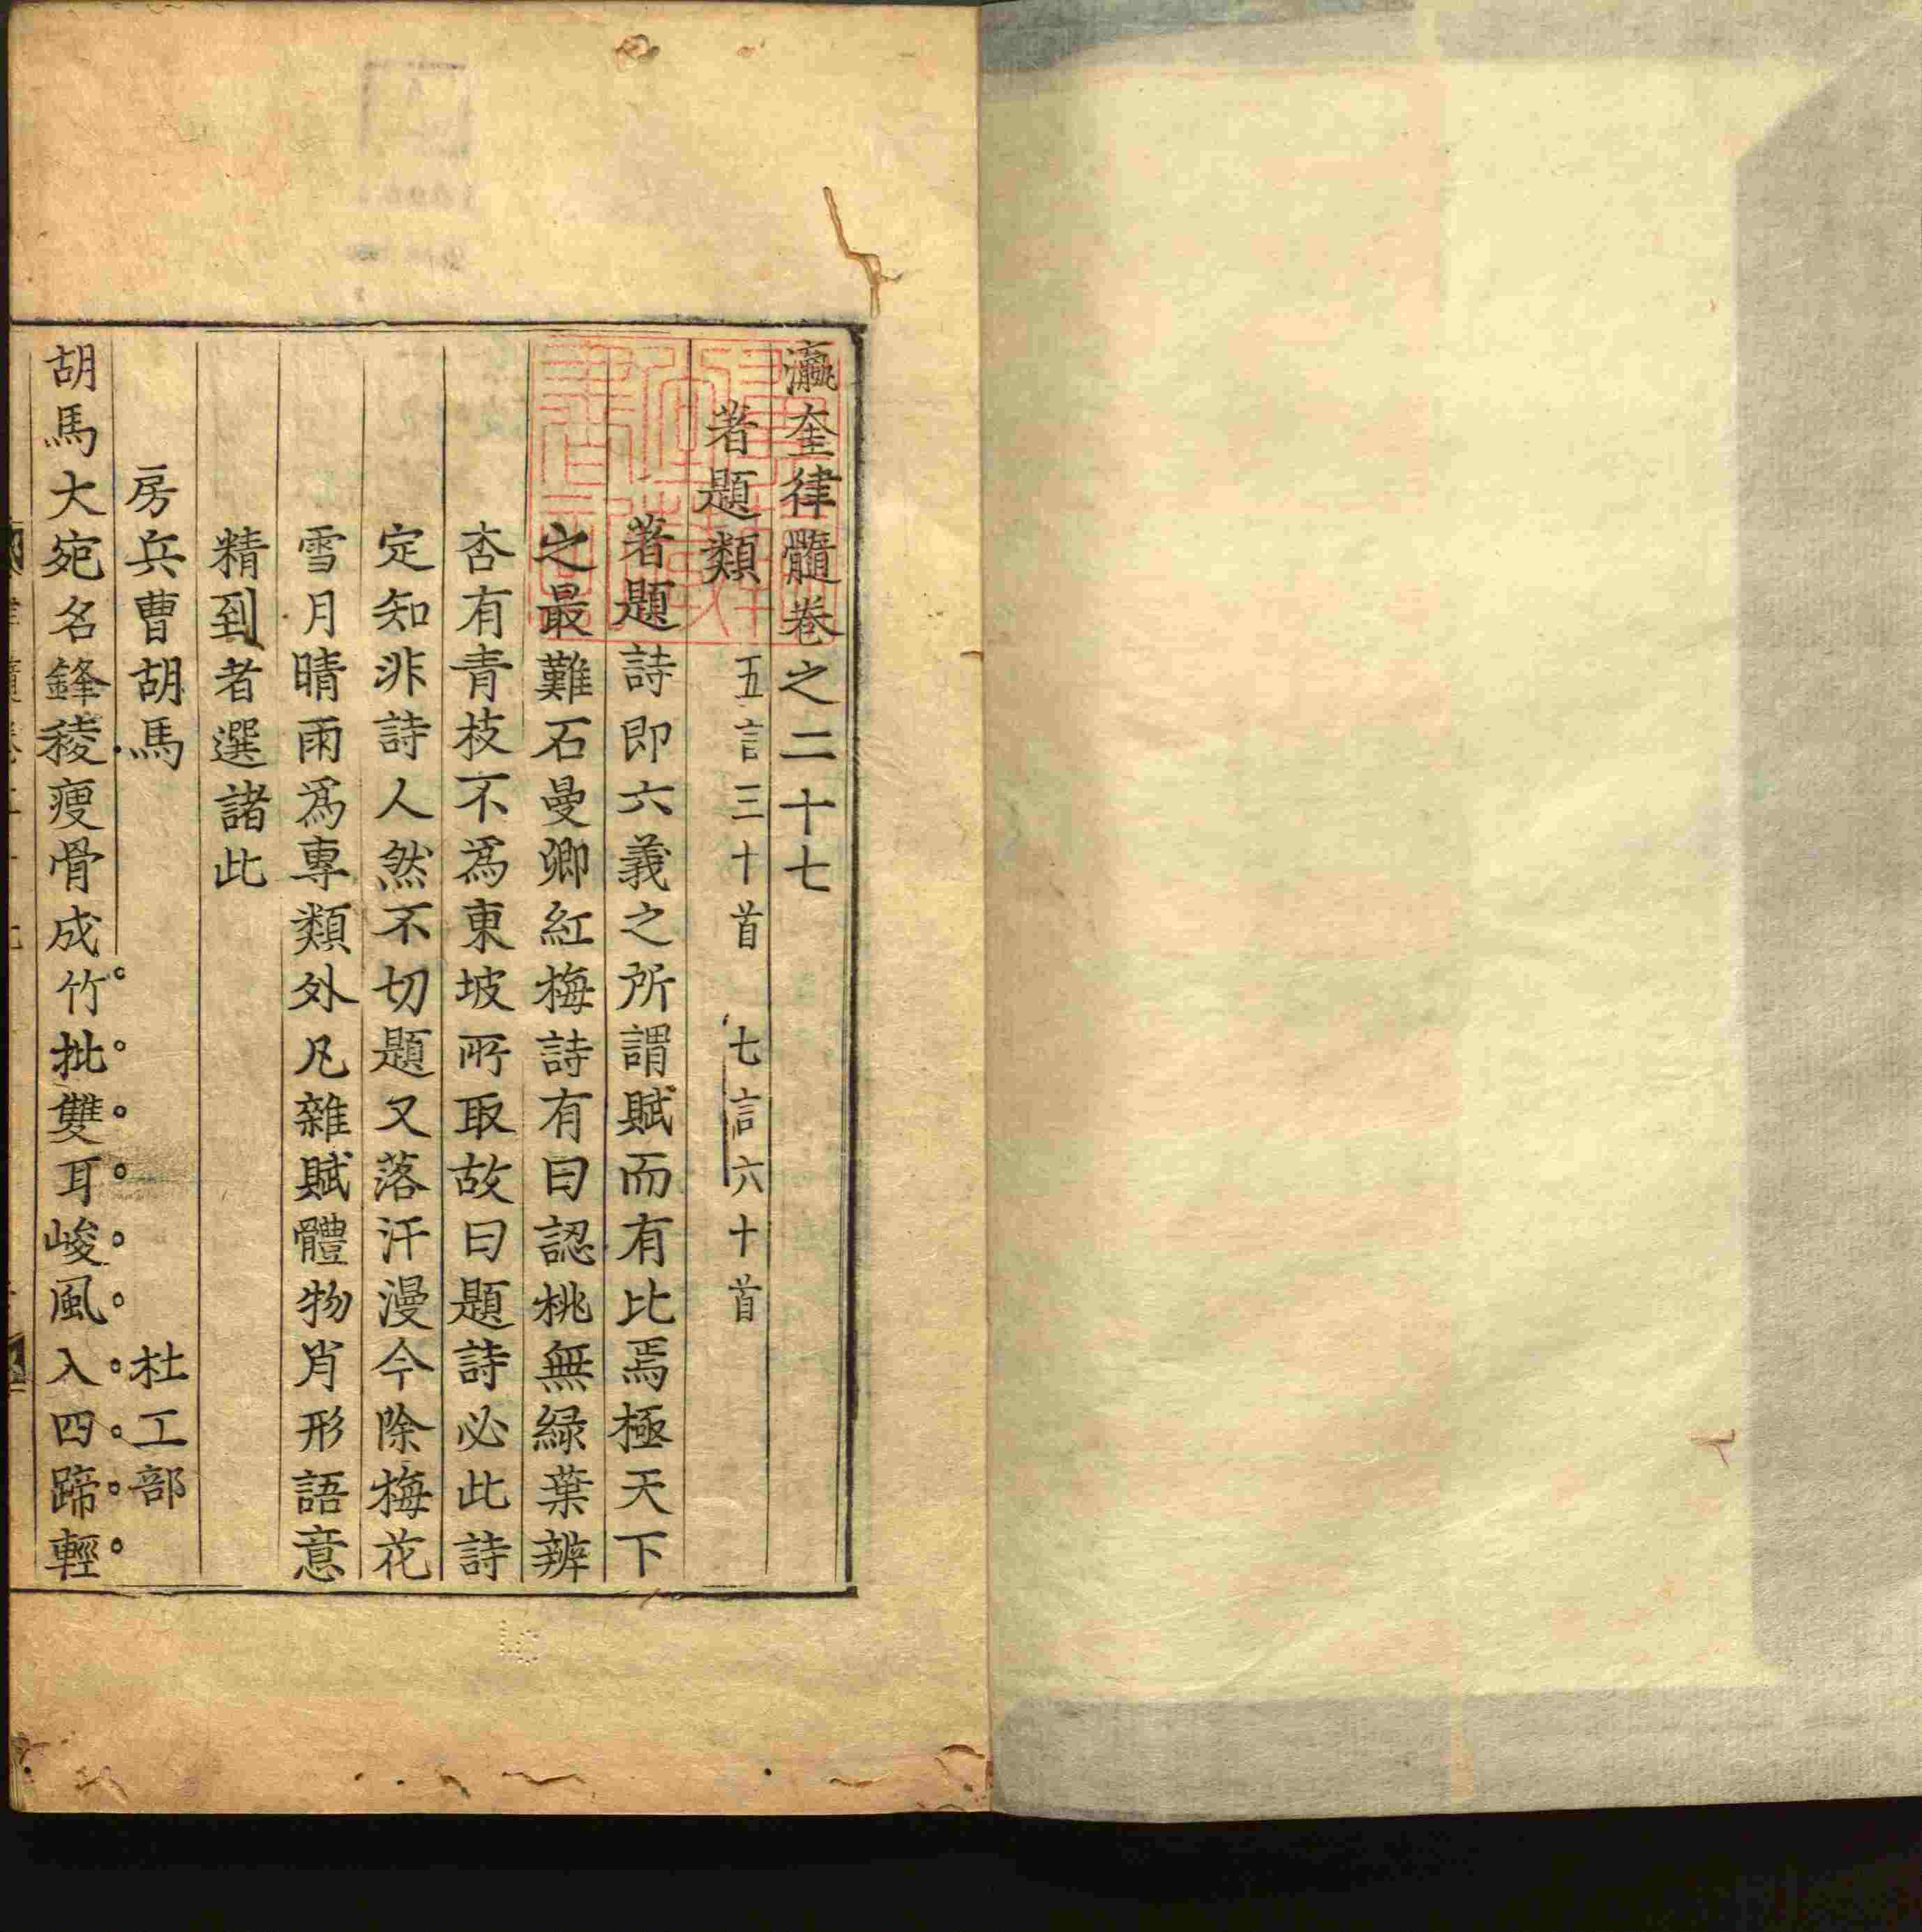 瀛奎律髓卷之二十七
著題類 五言三十首 七言六十首
著題詩即六義之所謂賦而有比焉極天下
之最難石曼卿紅梅詩有曰認桃無緑葉辨
杏有青枝不為東坡所取故曰題詩必此詩
定知非詩人然不切題又落汗漫今除梅花
雪月晴雨為專類外凡雜賦體物肖形語意
精到者選諸此
房兵曹胡馬 杜工部
胡馬大宛名鋒稜瘦骨成竹批雙耳峻風入四蹄輕